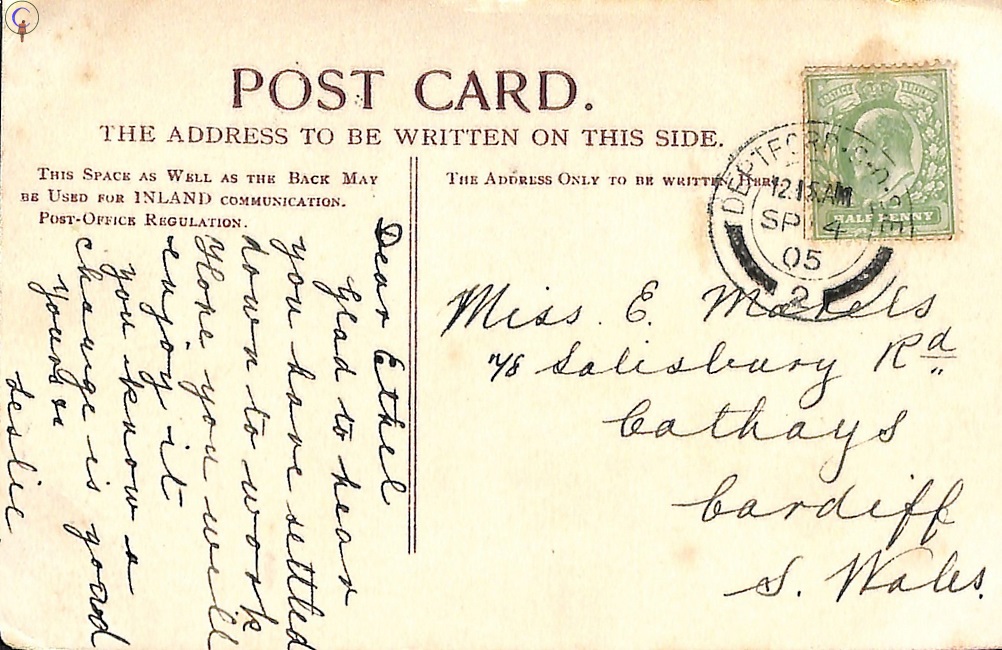 POST CARD.
THE ADDRESS TO BE WRITTEN ON THIS SIDE.
THIS SPACE AS WELL AS THE BACK MAY
BE USED FOR INLAND COMMUNICATION.
POST-OFFICE REGULATION.
THE ADDRESS ONLY TO BE WRITTEN HERE
POSTAGE REVENUE
HALF PENNY
DEPTFORD. S.O.
12.15AM
SP 4
05
2
Dear Ethel
Glad to hear
you have settled
down to work
Hope you will
enjoy it
you know a
change is good
yours
Leslie
Miss. E.
Salisbury Rd
Cathays
Cardiff
S. Wales.